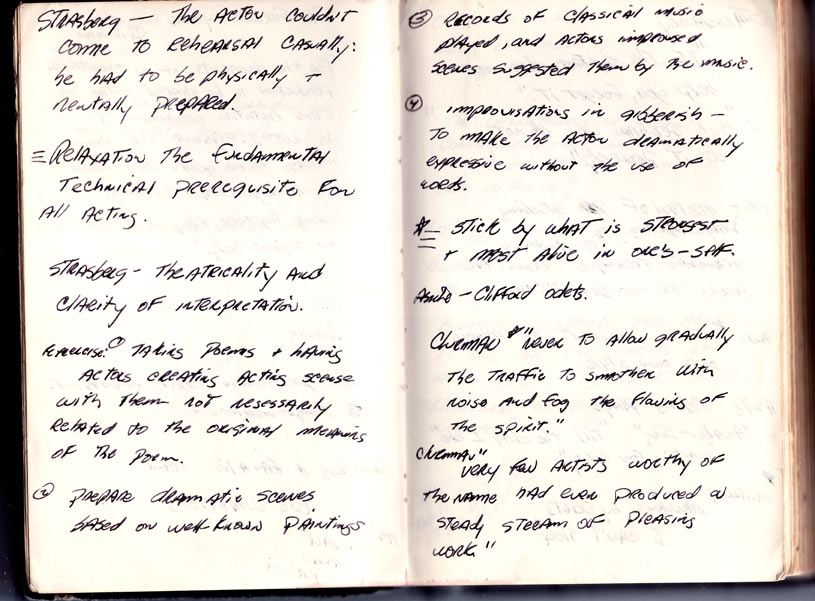 STRASberg — The ACTOR COULDN'T
COME TO REHEARSAL CASUALLY:
he hAD to be physically +
MENTALLY PREPARED.
RELAXATION The FUNDAMENTAL
TECHNICAL PREREQUISITE FOR
All Acting.
STRASberg - TheATRICALITY AND
CLARITY OF INTERPRETATION.
EXERCISE: ① TAKING POEMS + hAVING
ACTORS CREATING ACTING SCENSE
WITH Them NOT NECESSARILY
RELATED TO THE ORIGINAL MEANING
OF The POEM.
② PREPARE dRAMATIC SCENES
bASED ON WELL KNOWN PAINTINGS
③ RECORDS OF CLASSICAL MUSIC
PLAYED, AND ACTORS IMPROVISED
SCENES SUGGESTED Them by The MUSIC.
④ IMPROVISATIONS IN gibberish —
TO MAKE The ACTOR dRAMATICALLY
EXPRESSIVE WITHOUT The USE OF
WORDS.
STICK by WHAT IS STRONGEST
+ MOST Alive IN ONE'S-SELF.
— Clifford Odets.
CLURMAN "NEVER TO Allow gRADUALLY
The TRAFFIC TO SMOTHER WITH
NOISE AND FOG The FLOWING OF
The SPIRIT."
CLURMAN "VERY FEW ARTISTS WORTHY OF
The NAME hAD EVER PRODUCED A
STEADY STREAM OF PLEASING
WORK."